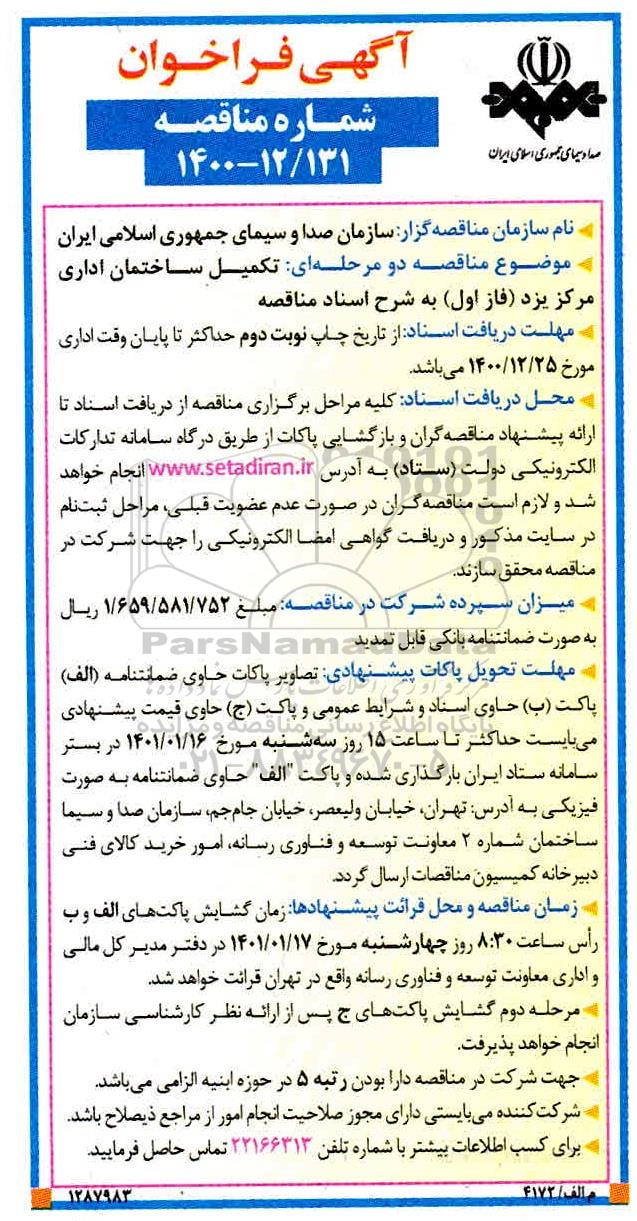 آگهی فراخوان
صدا و سیمای جمهوری اسلامی ایران
شماره مناقصه
۱۴۰۰-۱۲/۱۳۱
نام سازمان مناقصه‌گزار: سازمان صدا و سیمای جمهوری اسلامی ایران
موضوع مناقصه دو مرحله‌ای: تکمیل ساختمان اداری
مرکز یزد (فاز اول) به شرح اسناد مناقصه
مهلت دریافت اسناد: از تاریخ چاپ نوبت دوم حداکثر تا پایان وقت اداری
مورخ ۱۴۰۰/۱۲/۲۵ می‌باشد.
محل دریافت اسناد: کلیه مراحل برگزاری مناقصه از دریافت اسناد تا
ارائه پیشنهاد مناقصه‌گران و بازگشایی پاکات از طریق درگاه سامانه تدارکات
الکترونیکی دولت (ستاد) به آدرس www.setadiran.ir انجام خواهد
شد و لازم است مناقصه‌گران در صورت عدم عضویت قبلی، مراحل ثبت‌نام
در سایت مذکور و دریافت گواهی امضا الکترونیکی را جهت شرکت در
مناقصه محقق سازند.
میزان سپرده شرکت در مناقصه: مبلغ ۱/۶۵۹/۵۸۱/۷۵۲ ریال
به صورت ضمانتنامه بانکی قابل تمدید
ParsNamadData
مهلت تحویل پاکات پیشنهادی: تصاویر پاکات حاوی ضمانتنامه (الف)
پاکت (ب) حاوی اسناد و شرایط عمومی و پاکت (ج) حاوی قیمت پیشنهادی
پایگاه اطلاع رسانی مناقصه و مزایده
می‌بایست حداکثر تا ساعت ۱۵ روز سه‌شنبه مورخ ۱۴۰۱/۰۱/۱۶ در بستر
۰۲۱-۸۸۳۴۹۶۷۰-۵
سامانه ستاد ایران بارگذاری شده و پاکت "الف" حاوی ضمانتنامه به صورت
فیزیکی به آدرس: تهران، خیابان ولیعصر، خیابان جام‌جم، سازمان صدا و سیما
ساختمان شماره ۲ معاونت توسعه و فناوری رسانه، امور خرید کالای فنی
دبیرخانه کمیسیون مناقصات ارسال گردد.
زمان مناقصه و محل قرائت پیشنهادها: زمان گشایش پاکت‌های الف و ب
رأس ساعت ۸:۳۰ روز چهارشنبه مورخ ۱۴۰۱/۰۱/۱۷ در دفتر مدیر کل مالی
و اداری معاونت توسعه و فناوری رسانه واقع در تهران قرائت خواهد شد.
مرحله دوم گشایش پاکت‌های ج پس از ارائه نظر کارشناسی سازمان
انجام خواهد پذیرفت.
جهت شرکت در مناقصه دارا بودن رتبه ۵ در حوزه ابنیه الزامی می‌باشد.
شرکت‌کننده می‌بایستی دارای مجوز صلاحیت انجام امور از مراجع ذیصلاح باشد.
برای کسب اطلاعات بیشتر با شماره تلفن ۲۲۱۶۶۳۱۳ تماس حاصل فرمایید.
م الف/ ۴۱۷۲
۱۲۸۷۹۸۳